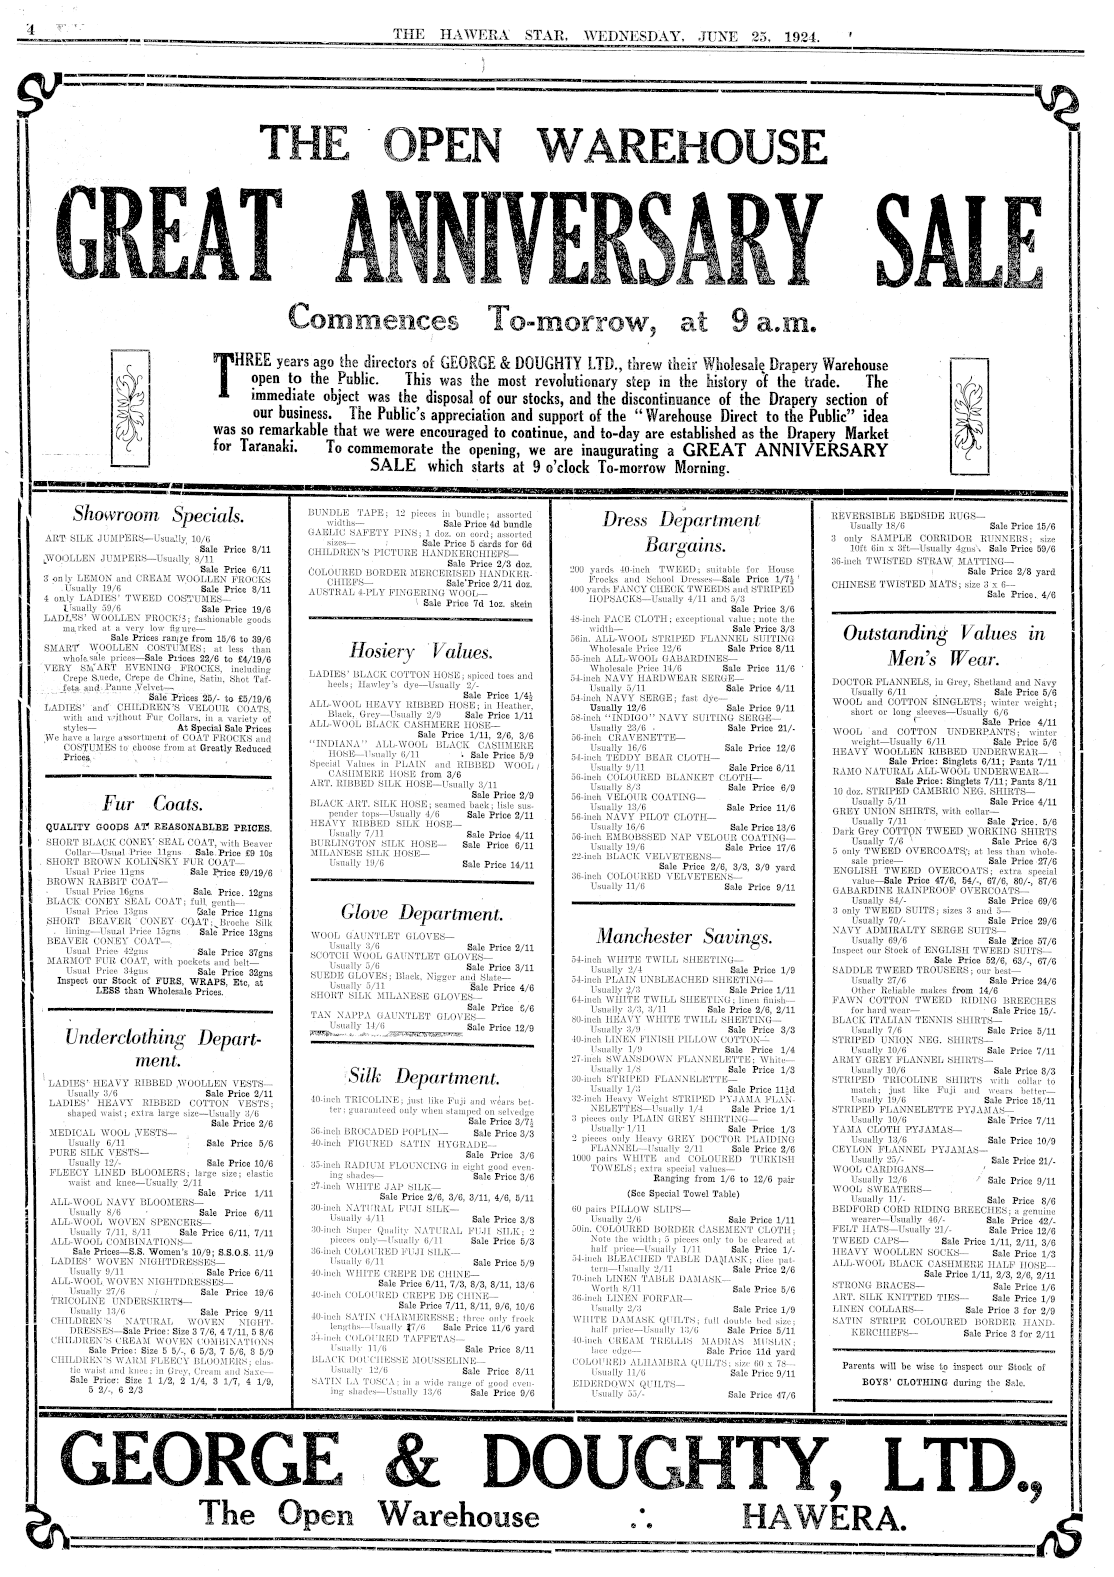 4
THE HAWERA STAR, WEDNESDAY, JUNE 25, 1924.
THE OPEN WAREHOUSE
GREAT ANNIVERSARY SALE
Commences To-morrow, at 9 a.m.
THREE years ago the directors of GEORGE & DOUGHTY LTD., threw their Wholesale Drapery Warehouse
open to the Public. This was the most revolutionary step in the history of the trade. The
immediate object was the disposal of our stocks, and the discontinuance of the Drapery section of
our business. The Public's appreciation and support of the "Warehouse Direct to the Public" idea
was so remarkable that we were encouraged to continue, and to-day are established as the Drapery Market
for Taranaki. To commemorate the opening, we are inaugurating a GREAT ANNIVERSARY
SALE which starts at 9 o'clock To-morrow Morning.
Showroom Specials.
ART SILK JUMPERS—Usually, 10/6
Sale Price 8/11
WOOLLEN JUMPERS—Usually, 8/11
Sale Price 6/11
3 only LEMON and CREAM WOOLLEN FROCKS
Usually 19/6 Sale Price 8/11
4 only LADIES' TWEED COSTUMES—
Usually 59/6 Sale Price 19/6
LADIES' WOOLLEN FROCKS; fashionable goods
marked at a very low figure—
Sale Prices range from 15/6 to 39/6
SMART WOOLLEN COSTUMES; at less than
wholesale prices—Sale Prices 22/6 to £4/19/6
VERY SMART EVENING FROCKS, including
Crepe Suede, Crepe de Chine, Satin, Shot Taf-
feta and Panne Velvet—
Sale Prices 25/- to £5/19/6
LADIES' and CHILDREN'S VELOUR COATS,
with and without Fur Collars, in a variety of
styles— At Special Sale Prices
We have a large assortment of COAT FROCKS and
COSTUMES to choose from at Greatly Reduced
Prices
Fur Coats.
QUALITY GOODS AT REASONALBE PRICES.
SHORT BLACK CONEY SEAL COAT, with Beaver
Collar—Usual Price 11gns Sale Price £9 10s
SHORT BROWN KOLINSKY FUR COAT—
Usual Price 11gns Sale Price £9/19/6
BROWN RABBIT COAT—
Usual Price 16gns Sale Price. 12gns
BLACK CONEY SEAL COAT; full length—
Usual Price 13gns Sale Price 11gns
SHORT BEAVER CONEY COAT; Broche Silk
lining—Usual Price 15gns Sale Price 13gns
BEAVER CONEY COAT—
Usual Price 42gns Sale Price 37gns
MARMOT FUR COAT, with pockets and belt—
Usual Price 34gns Sale Price 32gns
Inspect our Stock of FURS, WRAPS, Etc, at
LESS than Wholesale Prices.
Underclothing Depart-
ment.
LADIES' HEAVY RIBBED WOOLLEN VESTS—
Usually 3/6 Sale Price 2/11
LADIES' HEAVY RIBBED COTTON VESTS;
shaped waist; extra large size—Usually 3/6
Sale Price 2/6
MEDICAL WOOL VESTS—
Usually 6/11 Sale Price 5/6
PURE SILK VESTS—
Usually 12/- Sale Price 10/6
FLEECY LINED BLOOMERS; large size; elastic
waist and knee—Usually 2/11
Sale Price 1/11
ALL-WOOL NAVY BLOOMERS—
Usually 8/6 Sale Price 6/11
ALL-WOOL WOVEN SPENCERS—
Usually 7/11, 8/11 Sale Price 6/11, 7/11
ALL-WOOL COMBINATIONS—
Sale Prices—S.S. Women's 10/9; S.S.O.S. 11/9
LADIES' WOVEN NIGHTDRESSES—
Usually 9/11 Sale Price 6/11
ALL-WOOL WOVEN NIGHTDRESSES—
Usually 27/6 Sale Price 19/6
TRICOLINE UNDERSKIRTS—
Usually 13/6 Sale Price 9/11
CHILDREN'S NATURAL WOVEN NIGHT-
DRESSES—Sale Price: Size 3 7/6, 4 7/11, 5 8/6
CHILDREN'S CREAM WOVEN COMBINATIONS
Sale Price: Size 5 5/-, 6 5/3, 7 5/6, 8 5/9
CHILDREN'S WARM FLEECY BLOOMERS; elas-
tic waist and knee; in Grey, Cream and Saxe—
Sale Price: Size 1 1/2, 2 1/4, 3 1/7, 4 1/9,
5 2/-, 6 2/3
BUNDLE TAPE; 12 pieces in bundle; assorted
widths— Sale Price 4d bundle
GAELIC SAFETY PINS; 1 doz. on cord; assorted
sizes— Sale Price 5 cards for 6d
CHILDREN'S PICTURE HANDKERCHIEFS—
Sale Price 2/3 doz.
COLOURED BORDER MERCERISED HANDKER-
CHIEFS— Sale Price 2/11 doz.
AUSTRAL 4-PLY FINGERING WOOL—
Sale Price 7d 1oz. skein
Hosiery Values.
LADIES' BLACK COTTON HOSE; spiced toes and
heels; Hawley's dye—Usually 2/-
Sale Price 1/4½
ALL-WOOL HEAVY RIBBED HOSE; in Heather,
Black, Grey—Usually 2/9 Sale Price 1/11
ALL-WOOL BLACK CASHMERE HOSE—
Sale Price 1/11, 2/6, 3/6
"INDIANA" ALL-WOOL BLACK CASHMERE
HOSE—Usually 6/11 Sale Price 5/9
Special Values in PLAIN and RIBBED WOOL
CASHMERE HOSE from 3/6
ART. RIBBED SILK HOSE—Usually 3/11
Sale Price 2/9
BLACK ART. SILK HOSE; seamed back; lisle sus-
pender tops—Usually 4/6 Sale Price 2/11
HEAVY RIBBED SILK HOSE—
Usually 7/11 Sale Price 4/11
BURLINGTON SILK HOSE— Sale Price 6/11
MILANESE SILK HOSE—
Usually 19/6 Sale Price 14/11
Glove Department.
WOOL GAUNTLET GLOVES—
Usually 3/6 Sale Price 2/11
SCOTCH WOOL GAUNTLET GLOVES—
Usually 5/6 Sale Price 3/11
SUEDE GLOVES; Black, Nigger and Slate—
Usually 5/11 Sale Price 4/6
SHORT SILK MILANESE GLOVES—
Sale Price 6/6
TAN NAPPA GAUNTLET GLOVES—
Usually 14/6 Sale Price 12/9
Silk Department.
40-inch TRICOLINE; just like Fuji and wears bet-
ter; guaranteed only when stamped on selvedge
Sale Price 3/7½
36-inch BROCADED POPLIN— Sale Price 3/3
40-inch FIGURED SATIN HYGRADE—
Sale Price 3/6
35-inch RADIUM FLOUNCING in eight good even-
ing shades— Sale Price 3/6
27-inch WHITE JAP SILK—
Sale Price 2/6, 3/6, 3/11, 4/6, 5/11
30-inch NATURAL FUJI SILK—
Usually 4/11 Sale Price 3/8
30-inch Super Quality NATURAL FUJI SILK; 2
pieces only—Usually 6/11 Sale Price 5/3
36-inch COLOURED FUJI SILK—
Usually 6/11 Sale Price 5/9
40-inch WHITE CREPE DE CHINE—
Sale Price 6/11, 7/3, 8/3, 8/11, 13/6
40-inch COLOURED CREPE DE CHINE—
Sale Price 7/11, 8/11, 9/6, 10/6
40-inch SATIN CHARMERESSE; three only frock
lengths—Usually 17/6 Sale Price 11/6 yard
34-inch COLOURED TAFFETAS—
Usually 11/6 Sale Price 8/11
BLACK DOUCHESSE MOUSSELINE—
Usually 12/6 Sale Price 8/11
SATIN LA TOSCA; in a wide range of good even-
ing shades—Usually 13/6 Sale Price 9/6
Dress Department
Bargains.
200 yards 40-inch TWEED; suitable for House
Frocks and School Dresses—Sale Price 1/7½
400 yards FANCY CHECK TWEEDS and STRIPED
HOPSACKS—Usually 4/11 and 5/3
Sale Price 3/6
48-inch FACE CLOTH; exceptional value; note the
width— Sale Price 3/3
56in. ALL-WOOL STRIPED FLANNEL SUITING
Wholesale Price 12/6 Sale Price 8/11
55-inch ALL-WOOL GABARDINES—
Wholesale Price 14/6 Sale Price 11/6
54-inch NAVY HARDWEAR SERGE—
Usually 5/11 Sale Price 4/11
54-inch NAVY SERGE; fast dye—
Usually 12/6 Sale Price 9/11
58-inch "INDIGO" NAVY SUITING SERGE—
Usually 23/6 Sale Price 21/-
56-inch CRAVENETTE—
Usually 16/6 Sale Price 12/6
54-inch TEDDY BEAR CLOTH—
Usually 9/11 Sale Price 6/11
56-inch COLOURED BLANKET CLOTH—
Usually 8/3 Sale Price 6/9
56-inch VELOUR COATING—
Usually 13/6 Sale Price 11/6
56-inch NAVY PILOT CLOTH—
Usually 16/6 Sale Price 13/6
56-inch EMBOBSSED NAP VELOUR COATING—
Usually 19/6 Sale Price 17/6
22-inch BLACK VELVETEENS—
Sale Price 2/6, 3/3, 3/9 yard
36-inch COLOURED VELVETEENS—
Usually 11/6 Sale Price 9/11
Manchester Savings.
54-inch WHITE TWILL SHEETING—
Usually 2/4 Sale Price 1/9
54-inch PLAIN UNBLEACHED SHEETING—
Usually 2/3 Sale Price 1/11
64-inch WHITE TWILL SHEETING; linen finish—
Usually 3/3, 3/11 Sale Price 2/6, 2/11
80-inch HEAVY WHITE TWILL SHEETING—
Usually 3/9 Sale Price 3/3
40-inch LINEN FINISH PILLOW COTTON—
Usually 1/9 Sale Price 1/4
27-inch SWANSDOWN FLANNELETTE; White—
Usually 1/8 Sale Price 1/3
30-inch STRIPED FLANNELETTE—
Usually 1/3 Sale Price 11½d
32-inch Heavy Weight STRIPED PYJAMA FLAN-
NELETTES—Usually 1/4 Sale Price 1/1
3 pieces only PLAIN GREY SHIRTING—
Usually 1/11 Sale Price 1/3
2 pieces only Heavy GREY DOCTOR PLAIDING
FLANNEL—Usually 2/11 Sale Price 2/6
1000 pairs WHITE and COLOURED TURKISH
TOWELS; extra special values—
Ranging from 1/6 to 12/6 pair
(See Special Towel Table)
60 pairs PILLOW SLIPS—
Usually 2/6 Sale Price 1/11
50in. COLOURED BORDER CASEMENT CLOTH;
Note the width; 5 pieces only to be cleared at
half price—Usually 1/11 Sale Price 1/-
54-inch BLEACHED TABLE DAMASK; dice pat-
tern—Usually 2/11 Sale Price 2/6
70-inch LINEN TABLE DAMASK—
Worth 8/11 Sale Price 5/6
36-inch LINEN FORFAR—
Usually 2/3 Sale Price 1/9
WHITE DAMASK QUILTS; full double bed size;
half price—Usually 13/6 Sale Price 5/11
40-inch CREAM TRELLIS MADRAS MUSLIN;
lace edge— Sale Price 11d yard
COLOURED ALHAMBRA QUILTS; size 60 x 78—
Usually 11/6 Sale Price 9/11
EIDERDOWN QUILTS—
Usually 55/- Sale Price 47/6
REVERSIBLE BEDSIDE RUGS—
Usually 18/6 Sale Price 15/6
3 only SAMPLE CORRIDOR RUNNERS; size
10ft 6in x 3ft—Usually 4gns Sale Price 59/6
36-inch TWISTED STRAW MATTING—
Sale Price 2/8 yard
CHINESE TWISTED MATS; size 3 x 6—
Sale Price. 4/6
Outstanding Values in
Men's Wear.
DOCTOR FLANNELS, in Grey, Shetland and Navy
Usually 6/11 Sale Price 5/6
WOOL and COTTON SINGLETS; winter weight;
short or long sleeves—Usually 6/6
Sale Price 4/11
WOOL and COTTON UNDERPANTS; winter
weight—Usually 6/11 Sale Price 5/6
HEAVY WOOLLEN RIBBED UNDERWEAR—
Sale Price: Singlets 6/11; Pants 7/11
RAMO NATURAL ALL-WOOL UNDERWEAR—
Sale Price: Singlets 7/11; Pants 8/11
10 doz. STRIPED CAMBRIC NEG. SHIRTS—
Usually 5/11 Sale Price 4/11
GREY UNION SHIRTS, with collar—
Usually 7/11 Sale Price. 5/6
Dark Grey COTTON TWEED WORKING SHIRTS
Usually 7/6 Sale Price 6/3
5 only TWEED OVERCOATS; at less than whole-
sale price— Sale Price 27/6
ENGLISH TWEED OVERCOATS; extra special
value—Sale Price 47/6, 54/-, 67/6, 80/-, 87/6
GABARDINE RAINPROOF OVERCOATS—
Usually 84/- Sale Price 69/6
3 only TWEED SUITS; sizes 3 and 5—
Usually 70/- Sale Price 29/6
NAVY ADMIRALTY SERGE SUITS—
Usually 69/6 Sale Price 57/6
Inspect our Stock of ENGLISH TWEED SUITS—
Sale Price 52/6, 63/-, 67/6
SADDLE TWEED TROUSERS; our best—
Usually 27/6 Sale Price 24/6
Other Reliable makes from 14/6
FAWN COTTON TWEED RIDING BREECHES
for hard wear— Sale Price 15/-
BLACK ITALIAN TENNIS SHIRTS—
Usually 7/6 Sale Price 5/11
STRIPED UNION NEG. SHIRTS—
Usually 10/6 Sale Price 7/11
ARMY GREY FLANNEL SHIRTS—
Usually 10/6 Sale Price 8/3
STRIPED TRICOLINE SHIRTS with collar to
match; just like Fuji and wears better—
Usually 19/6 Sale Price 15/11
STRIPED FLANNELETTE PYJAMAS—
Usually 10/6 Sale Price 7/11
YAMA CLOTH PYJAMAS—
Usually 13/6 Sale Price 10/9
CEYLON FLANNEL PYJAMAS—
Usually 25/- Sale Price 21/-
WOOL CARDIGANS—
Usually 12/6 Sale Price 9/11
WOOL SWEATERS—
Usually 11/- Sale Price 8/6
BEDFORD CORD RIDING BREECHES; a genuine
wearer—Usually 46/- Sale Price 42/-
FELT HATS—Usually 21/- Sale Price 12/6
TWEED CAPS— Sale Price 1/11, 2/11, 3/6
HEAVY WOOLLEN SOCKS— Sale Price 1/3
ALL-WOOL BLACK CASHMERE HALF HOSE—
Sale Price 1/11, 2/3, 2/6, 2/11
STRONG BRACES— Sale Price 1/6
ART. SILK KNITTED TIES— Sale Price 1/9
LINEN COLLARS— Sale Price 3 for 2/9
SATIN STRIPE COLOURED BORDER HAND-
KERCHIEFS— Sale Price 3 for 2/11
Parents will be wise to inspect our Stock of
BOYS' CLOTHING during the Sale.
GEORGE & DOUGHTY, LTD.,
The Open Warehouse ∴ HAWERA.